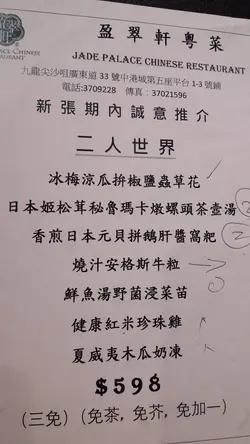 盈翠軒粵菜
JADE PALACE CHINESE RESTAURANT
九龍尖沙咀廣東道 33 號中港城第五座平台 1-3 號鋪
電話:3709228 傳真:37021596
新張期內誠意推介
二人世界
冰梅涼瓜拚椒鹽蟲草花
日本姬松茸秘魯瑪卡燉螺頭茶壺湯
香煎日本元貝拼鵝肝醬窩粑
燒汁安格斯牛粒
鮮魚湯野菌浸菜苗
健康紅米珍珠雞
夏威夷木瓜奶凍
$598
(三免) (免茶, 免芥, 免加一)